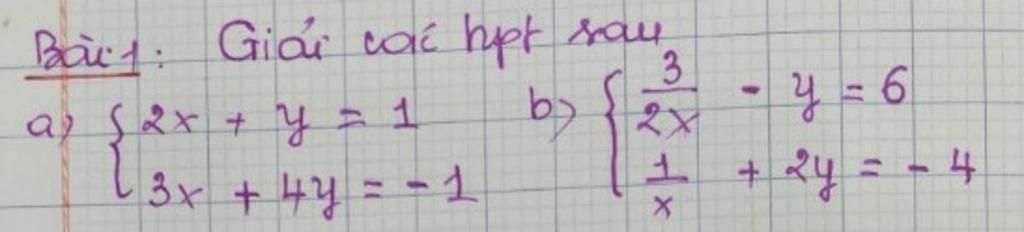 Bài 1: Giải các hpt sau
a) { 2x + y = 1
3x + 4y = -1
b) { 3/2x - y = 6
1/x + 2y = -4